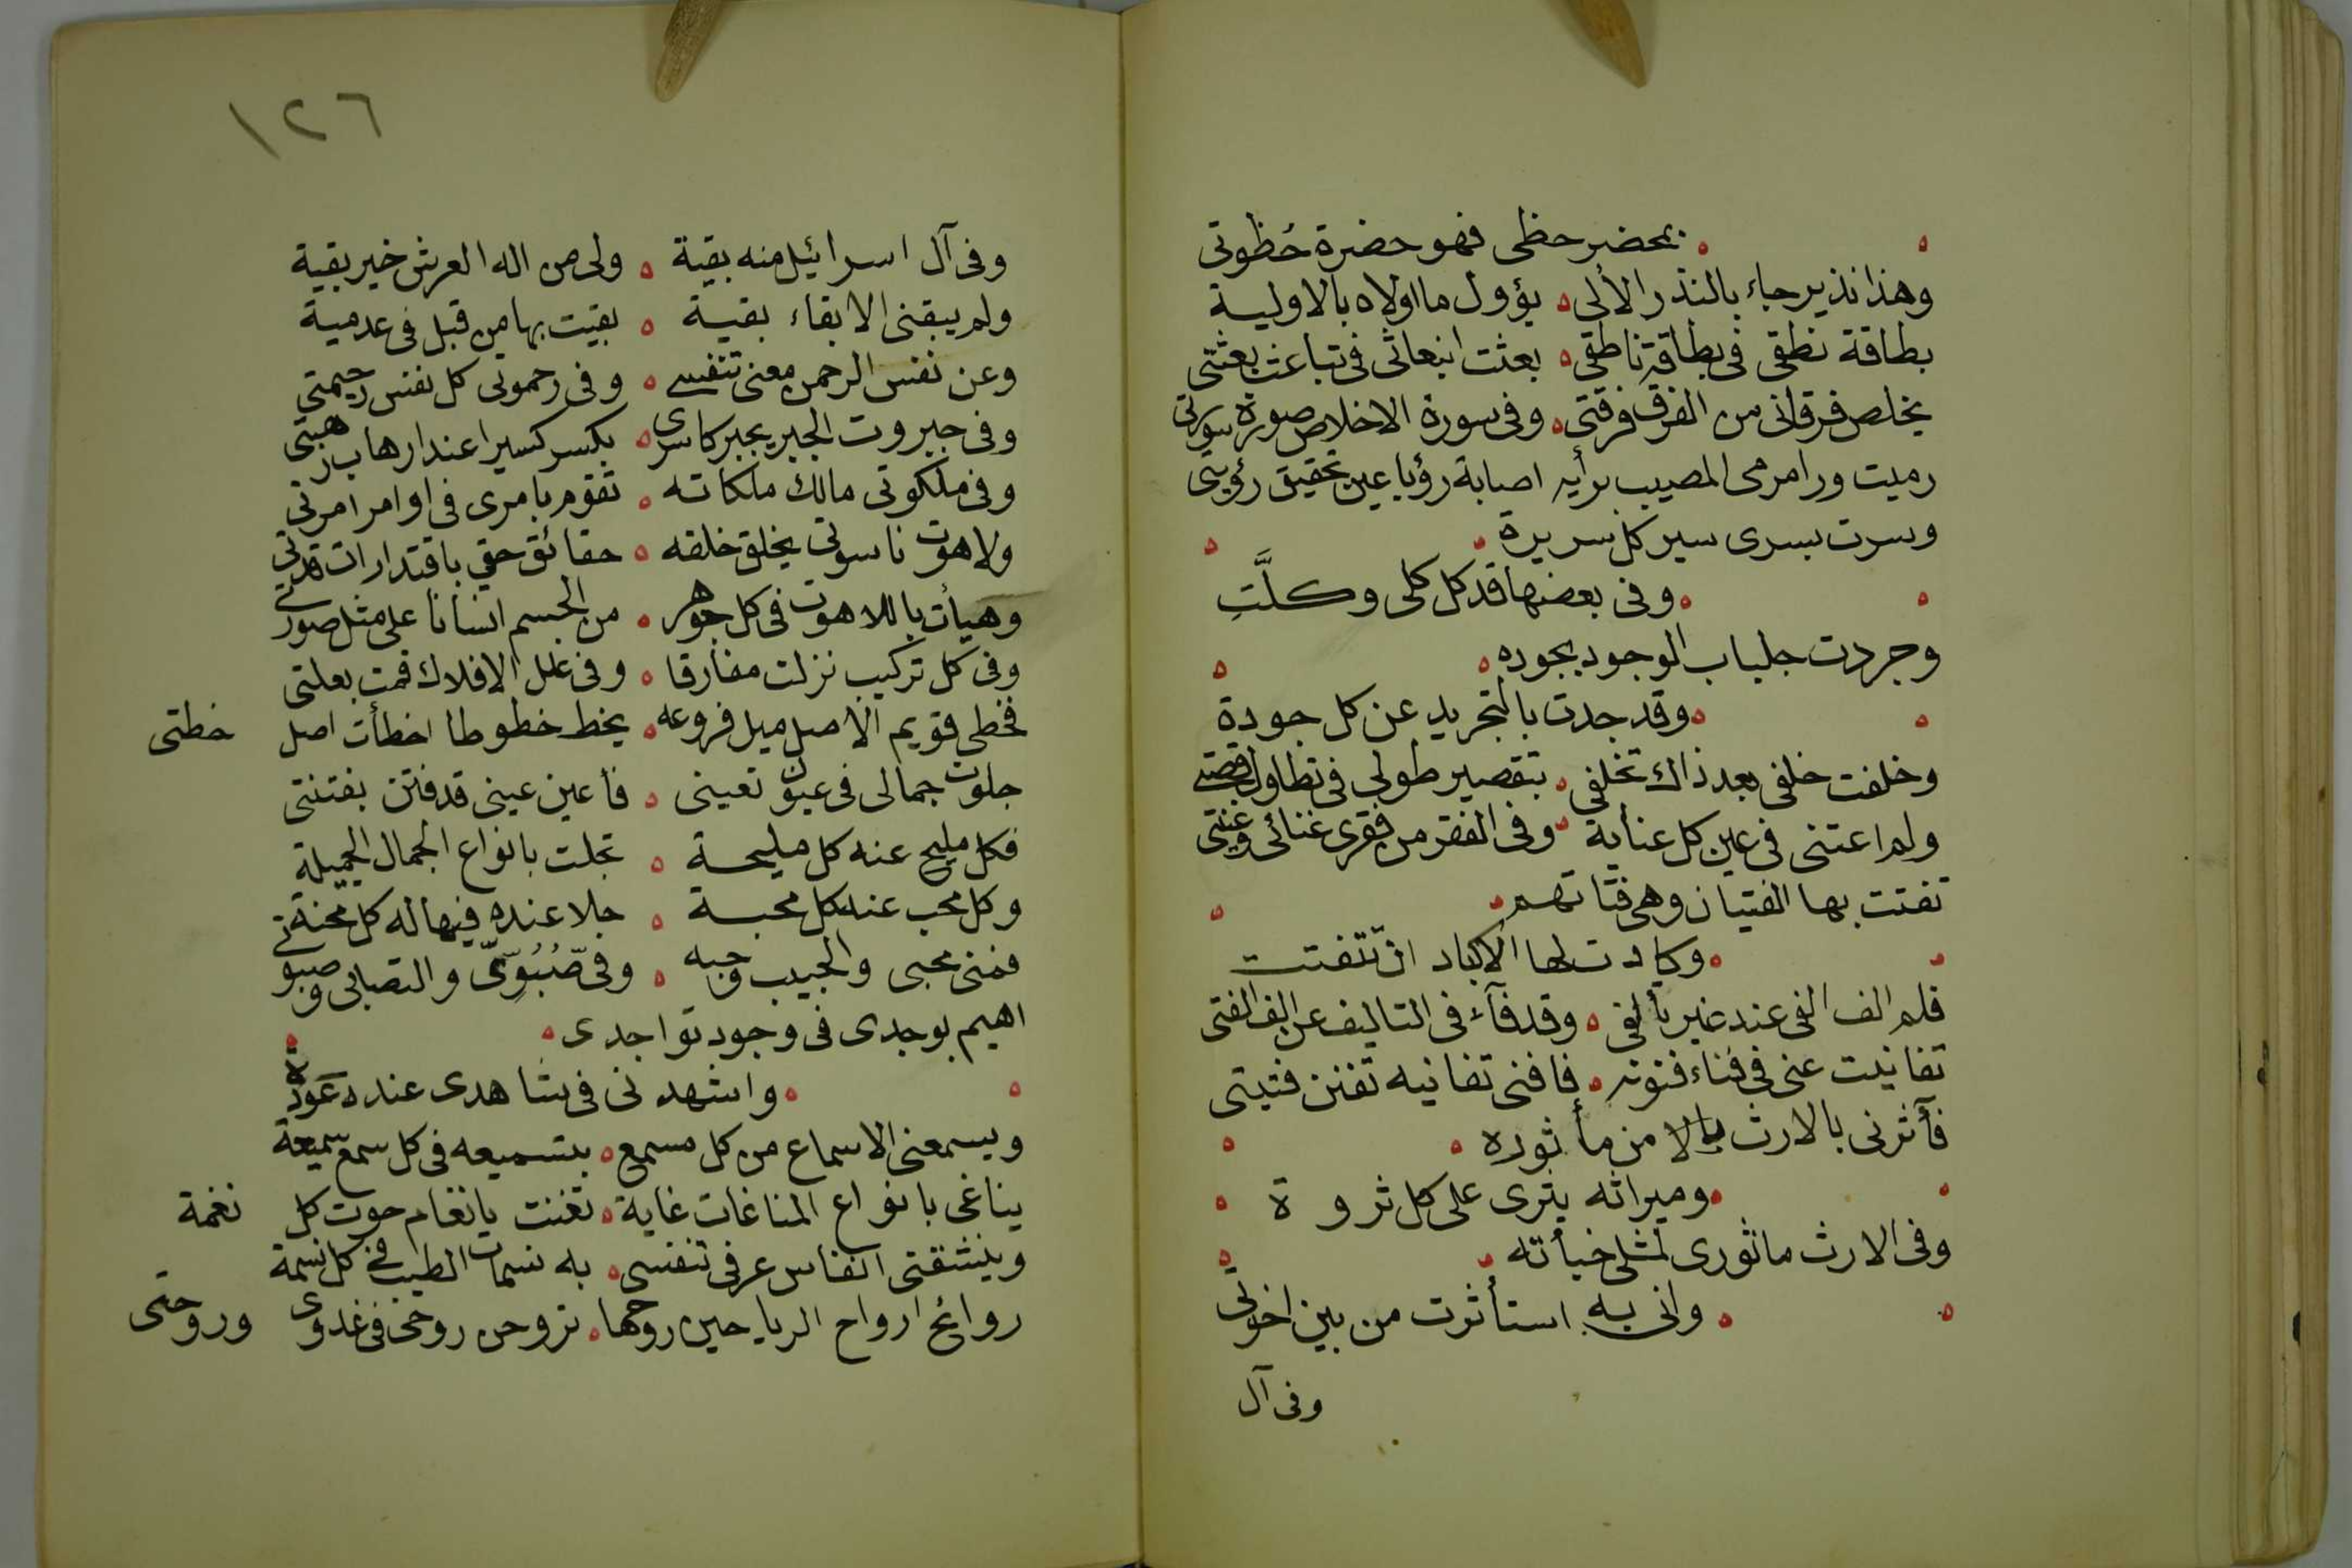 بمحضر حظى فهو حضرة حُظوتى
وهذا نذير جاء بالنذر الألى ه يؤول ما اولاه بالاولية
بطاقة نطقى فى بطاقة ناطقى ه بعثت انبعاثى فى تباعث بعثتى
يخلص فرقانى من الفرق فرقتى ه وفى سورة الاخلاص صورة سورتى
رميت ورا مرمى المصيب برأيه اصابة رؤيا عين تحقيق رؤيتى
وسرت بسرى سير كل سريرة ه
ه وفى بعضها قد كل كلى وكلَّتِ
وجردت جلباب الوجود بجوده ه
ه وقد جدت بالتجريد عن كل جودة
وخلفت خلفى بعد ذاك تخلفى ه بتقصير طولى فى تطاول
ولم اعتنى فى عين كل عناية ه وفى الفقر من فقرى غنائى وغنتى
تفتت بها الفتيان وهى فتاتهم ه
ه وكادت لها الاكباد ان تتفتت
فلم الف الفى عند غير تألفى ه وقد فآء فى التاليف عن الف الفتى
تفانيت عنى فى فناء فنونه ه فافنى تفانيه تفنن فتيتى
فآثرنى بالارث بالا من مأثوره ه
ه وميراثه يثرى على كل ثروة ه
وفى الارث ماثورى لمثلى خبأته ه
ه وانى به استأثرت من بين اخوتى
وفى آل
١٢٦
وفى آل اسرائيل منه بقية ه ولى من اله العرش خير بقية
ولم يبقنى الا بقاء بقية ه بقيت بها من قبل فى عدمية
وعن نفس الرحمن معنى تنفسى ه وفى رحموتى كل نفس رحيمتى
وفى جبروت الجبر يجبر كاسرى ه بكسر كسيرا عند ارهاب رهبتى
وفى ملكوتى مالك ملكاته ه تقوم بامرى فى اوامر امرتى
ولاهوت ناسوتى يخلق خلقه ه حقائق حقى باقتدارات قدرتى
وهيأت باللاهوت فى كل جوهر ه من الجسم انسانا على مثل صورتى
وفى كل تركيب نزلت مفارقا ه وفى علل الافلاك قمت بعلتى
فخطى قويم الاصل ميل فروعه ه يخط خطوطا اخطأت اصل خطتى
جلوت جمالى فى عيون تعينى ه فأعين عينى قد فتن بفتنتى
فكل مليح عنه كل مليحة ه تجلت بانواع الجمال الجميلة
وكل محب عنه كل محبة ه جلا عنده فيها له كل محنة
فمنى محبى والحبيب وحبه ه وفى صَبُوتى والتصابى وصبوتى
اهيم بوجدى فى وجود تواجدى ه
ه واشهدنى فى شاهدى عنده عَودة
ويسمعنى الاسماع من كل مسمع ه بتسميعه فى كل سمع سميعة
يناغى بانواع المناغات غاية ه تغنت بانغام حوت كل نغمة
وينشقنى انفاس عرفى تنفسى ه به نسمات الطيب فى كل نسمة
روائح ارواح الرياحين روحها ه تروحن روحى فى غدوى وروحتى